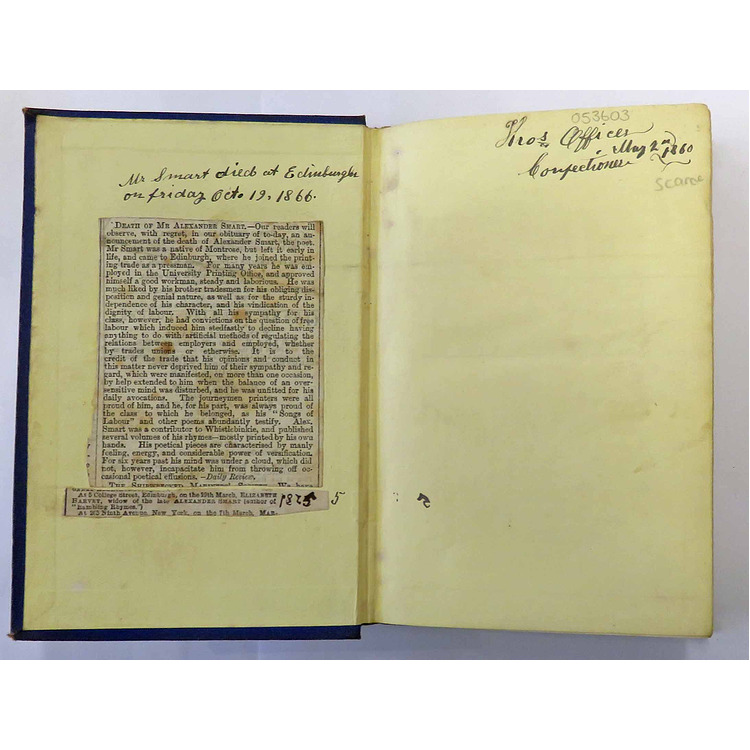 Mr Smart died at Edinburgh
on friday Octo 19, 1866.
DEATH OF MR ALEXANDER SMART.—Our readers will
observe, with regret, in our obituary of to-day, an an-
nouncement of the death of Alexander Smart, the poet.
Mr Smart was a native of Montrose, but left it early in
life, and came to Edinburgh, where he joined the print-
ing trade as a pressman. For many years he was em-
ployed in the University Printing Office, and approved
himself a good workman, steady and laborious. He was
much liked by his brother tradesmen for his obliging dis-
position and genial nature, as well as for the sturdy in-
dependence of his character, and his vindication of the
dignity of labour. With all his sympathy for his
class, however, he had convictions on the question of free
labour which induced him stedfastly to decline having
anything to do with artificial methods of regulating the
relations between employers and employed, whether
by trades unions or otherwise. It is to the
credit of the trade that his opinions and conduct in
this matter never deprived him of their sympathy and re-
gard, which were manifested, on more than one occasion,
by help extended to him when the balance of an over-
sensitive mind was disturbed, and he was unfitted for his
daily avocations. The journeymen printers were all
proud of him, and he, for his part, was always proud of
the class to which he belonged, as his "Songs of
Labour" and other poems abundantly testify. Alex.
Smart was a contributor to Whistlebinkie, and published
several volumes of his rhymes—mostly printed by his own
hands. His poetical pieces are characterised by manly
feeling, energy, and considerable power of versification.
For six years past his mind was under a cloud, which did
not, however, incapacitate him from throwing off oc-
casional poetical effusions.—Daily Review.
At 5 College Street, Edinburgh, on the 19th March, ELIZABETH
HARVEY, widow of the late ALEXANDER SMART (author of
"Rambling Rhymes.") 1875 5
At 263 Ninth Avenue, New York, on the 7th March, MAR-
053603
Thos Officer
Confectioner May 2nd 1860
Scarce